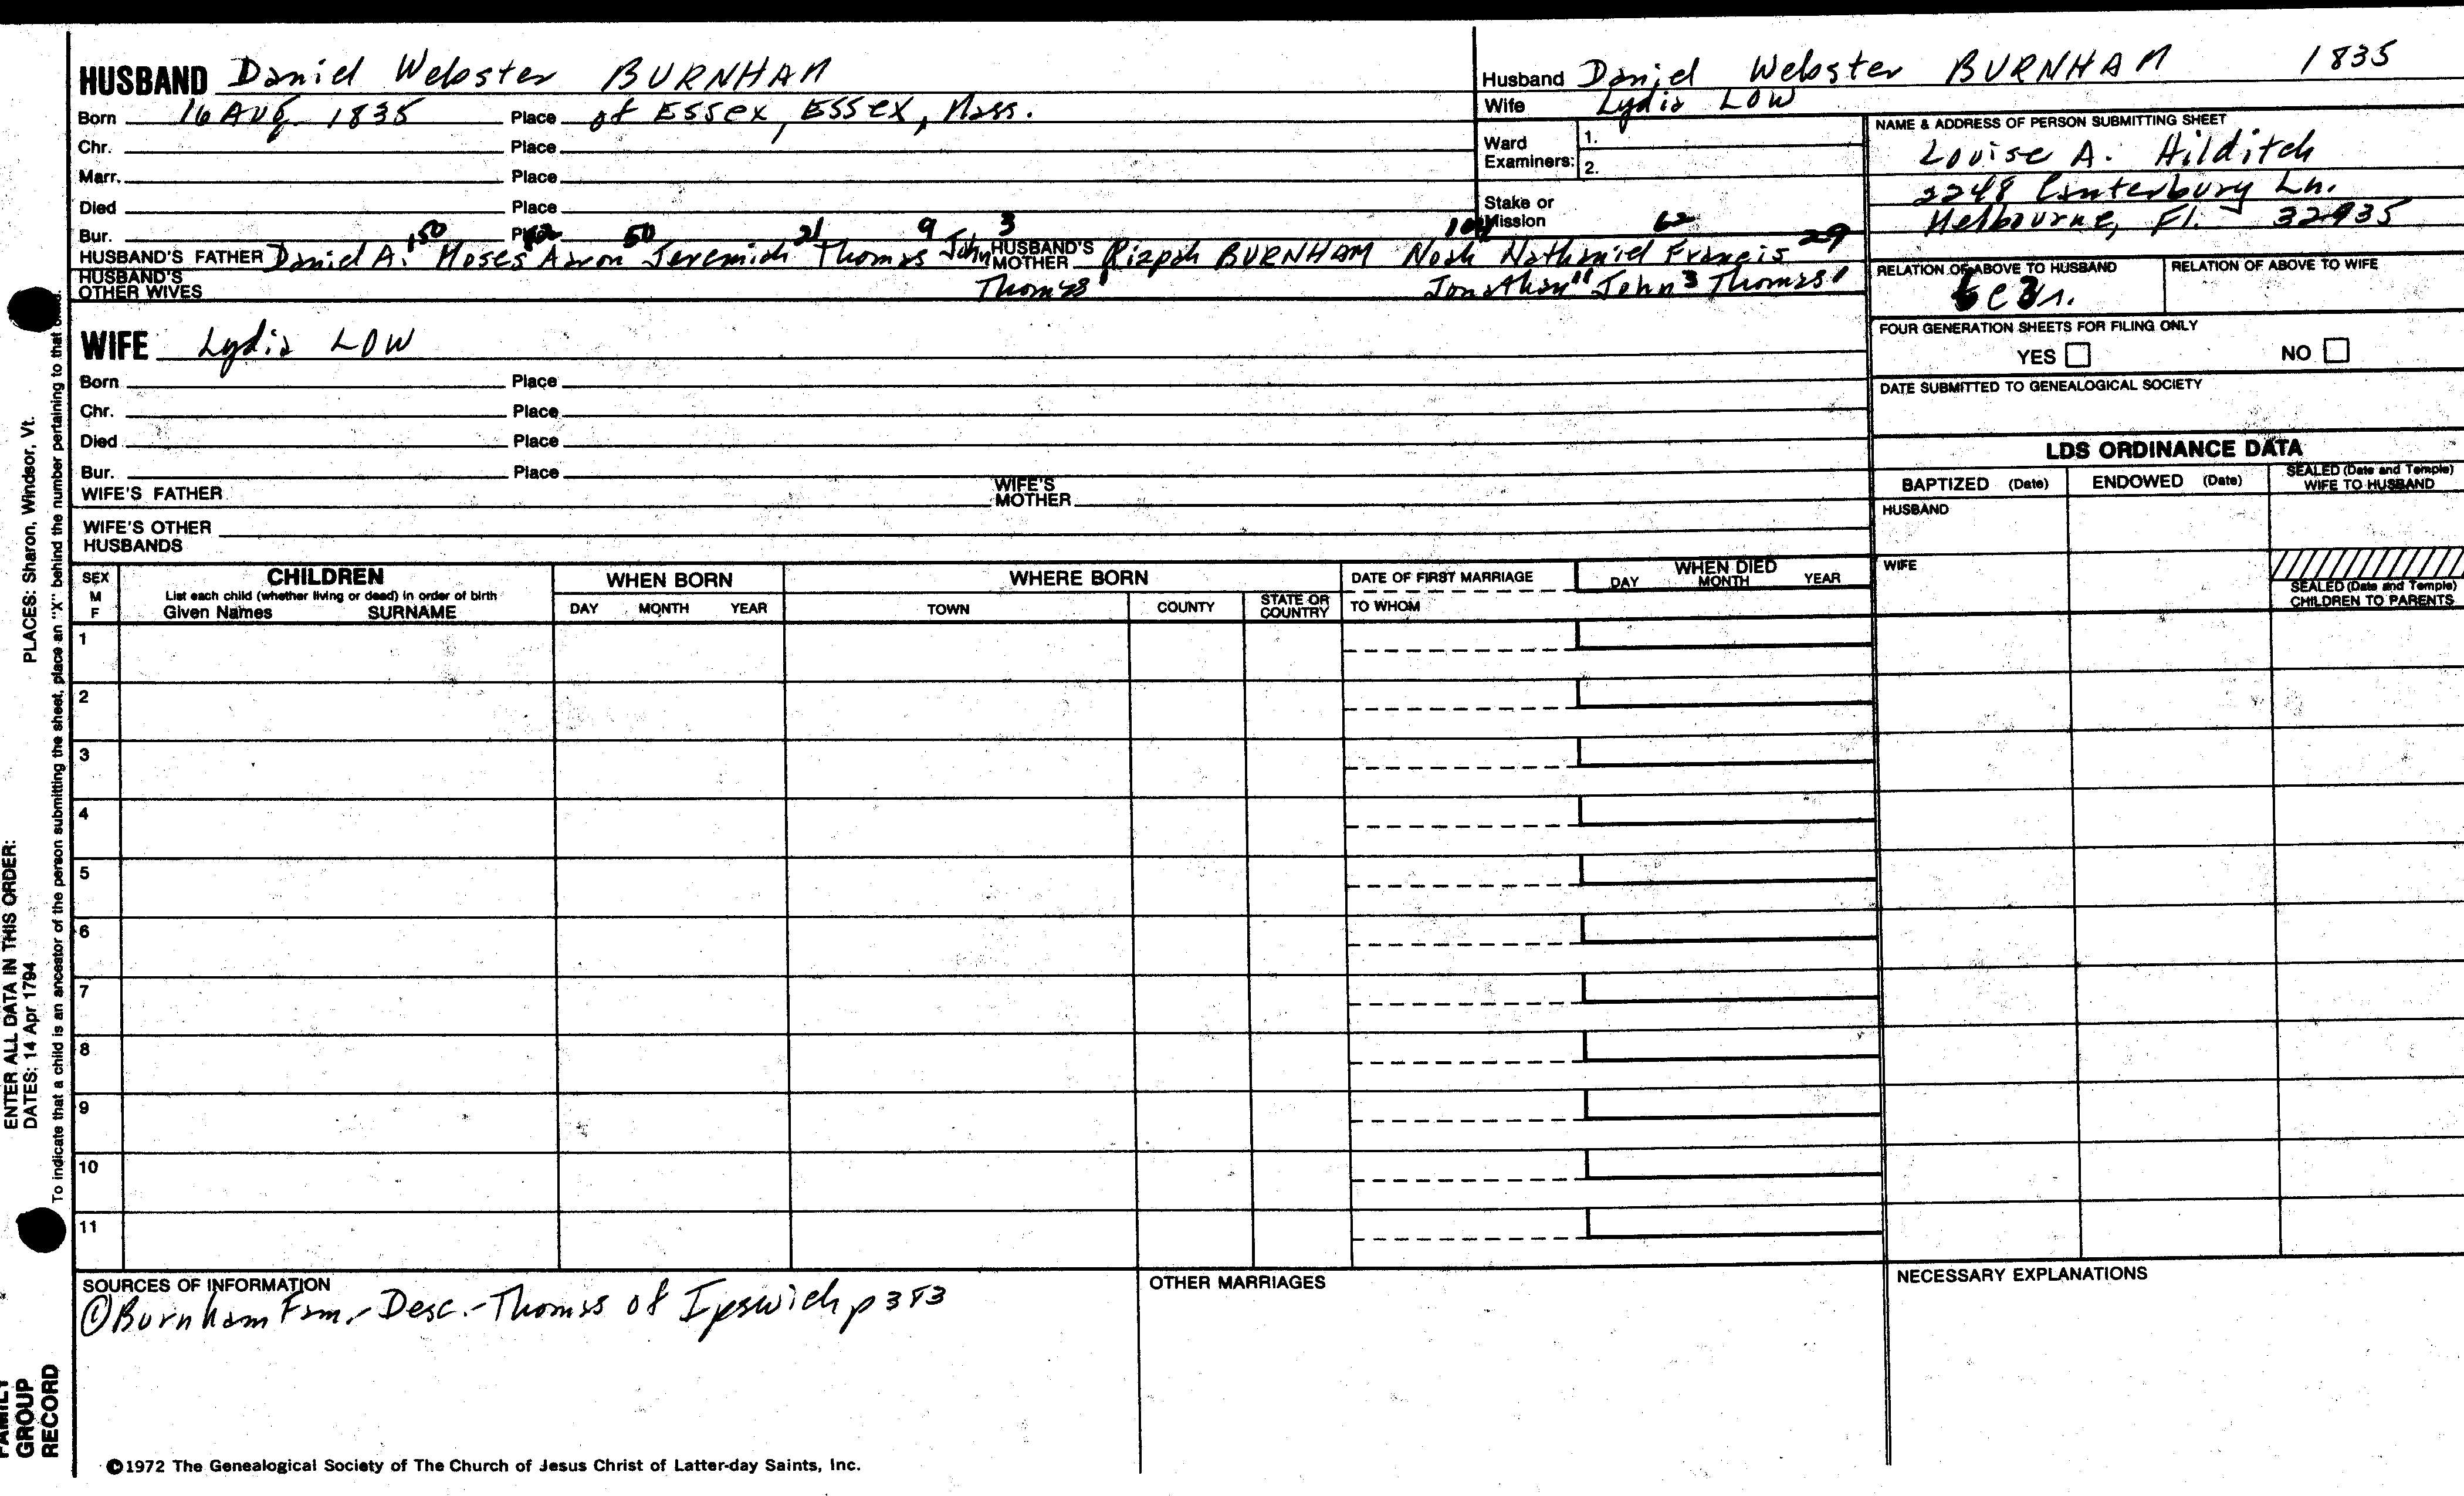 HUSBAND Daniel Webster BURNHAM
Born 16 AUG 1835 Place of Essex, Essex, Mass.
Chr. Place
Marr. Place
Died Place
Bur. Place
150 50 21 9 3 62 29
HUSBAND'S FATHER Daniel A. Moses Aaron Jeremiah Thomas John HUSBAND'S MOTHER Rizpah BURNHAM Noah Nathaniel Francis
HUSBAND'S OTHER WIVES Thomas 1 Jonathan 11 John 3 Thomas 1
WIFE Lydia LOW
Born Place
Chr. Place
Died Place
Bur. Place
WIFE'S FATHER WIFE'S MOTHER
WIFE'S OTHER HUSBANDS
Husband Daniel Webster BURNHAM 1835
Wife Lydia LOW
Ward Examiners: 1.
2.
Stake or Mission
NAME & ADDRESS OF PERSON SUBMITTING SHEET
Louise A. Hilditch
2248 Canterbury Ln.
Melbourne, Fl. 32935
RELATION OF ABOVE TO HUSBAND RELATION OF ABOVE TO WIFE
FOUR GENERATION SHEETS FOR FILING ONLY
YES NO
DATE SUBMITTED TO GENEALOGICAL SOCIETY
LDS ORDINANCE DATA
BAPTIZED (Date) ENDOWED (Date) SEALED (Date and Temple) WIFE TO HUSBAND
HUSBAND
WIFE
SEALED (Date and Temple) CHILDREN TO PARENTS
SEX M F
CHILDREN
List each child (whether living or dead) in order of birth
Given Names SURNAME
WHEN BORN
DAY MONTH YEAR
WHERE BORN
TOWN COUNTY STATE OR COUNTRY
DATE OF FIRST MARRIAGE
TO WHOM
WHEN DIED
DAY MONTH YEAR
1
2
3
4
5
6
7
8
9
10
11
SOURCES OF INFORMATION
① Burnham Fam.- Desc.- Thomas of Ipswich p 383
OTHER MARRIAGES
NECESSARY EXPLANATIONS
©1972 The Genealogical Society of The Church of Jesus Christ of Latter-day Saints, Inc.
FAMILY GROUP RECORD
ENTER ALL DATA IN THIS ORDER:
DATES: 14 Apr 1794
PLACES: Sharon, Windsor, Vt.
To indicate that a child is an ancestor of the person submitting the sheet, place an "X" behind the number pertaining to that